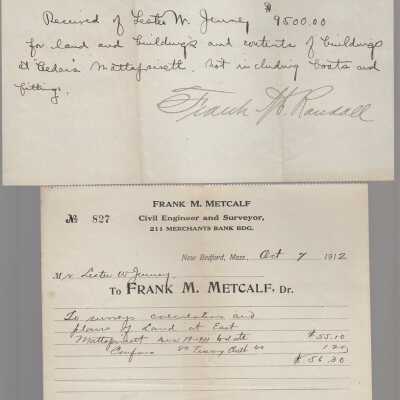 Received of Lester W. Jenney $9500.00
for land and buildings and contents of buildings
at "Cedars" Mattapoisett. not including boats and
fittings.
Frank H. Randall
FRANK M. METCALF
No 827
Civil Engineer and Surveyor,
211 MERCHANTS BANK BDG.
New Bedford, Mass., Oct 7 1912
Mr Lester W Jenney
To FRANK M. METCALF, Dr.
To surveys calculations and
plans of Land at East
Mattapoisett to date $55.10
Tracing Cloth 1.20
$56.30